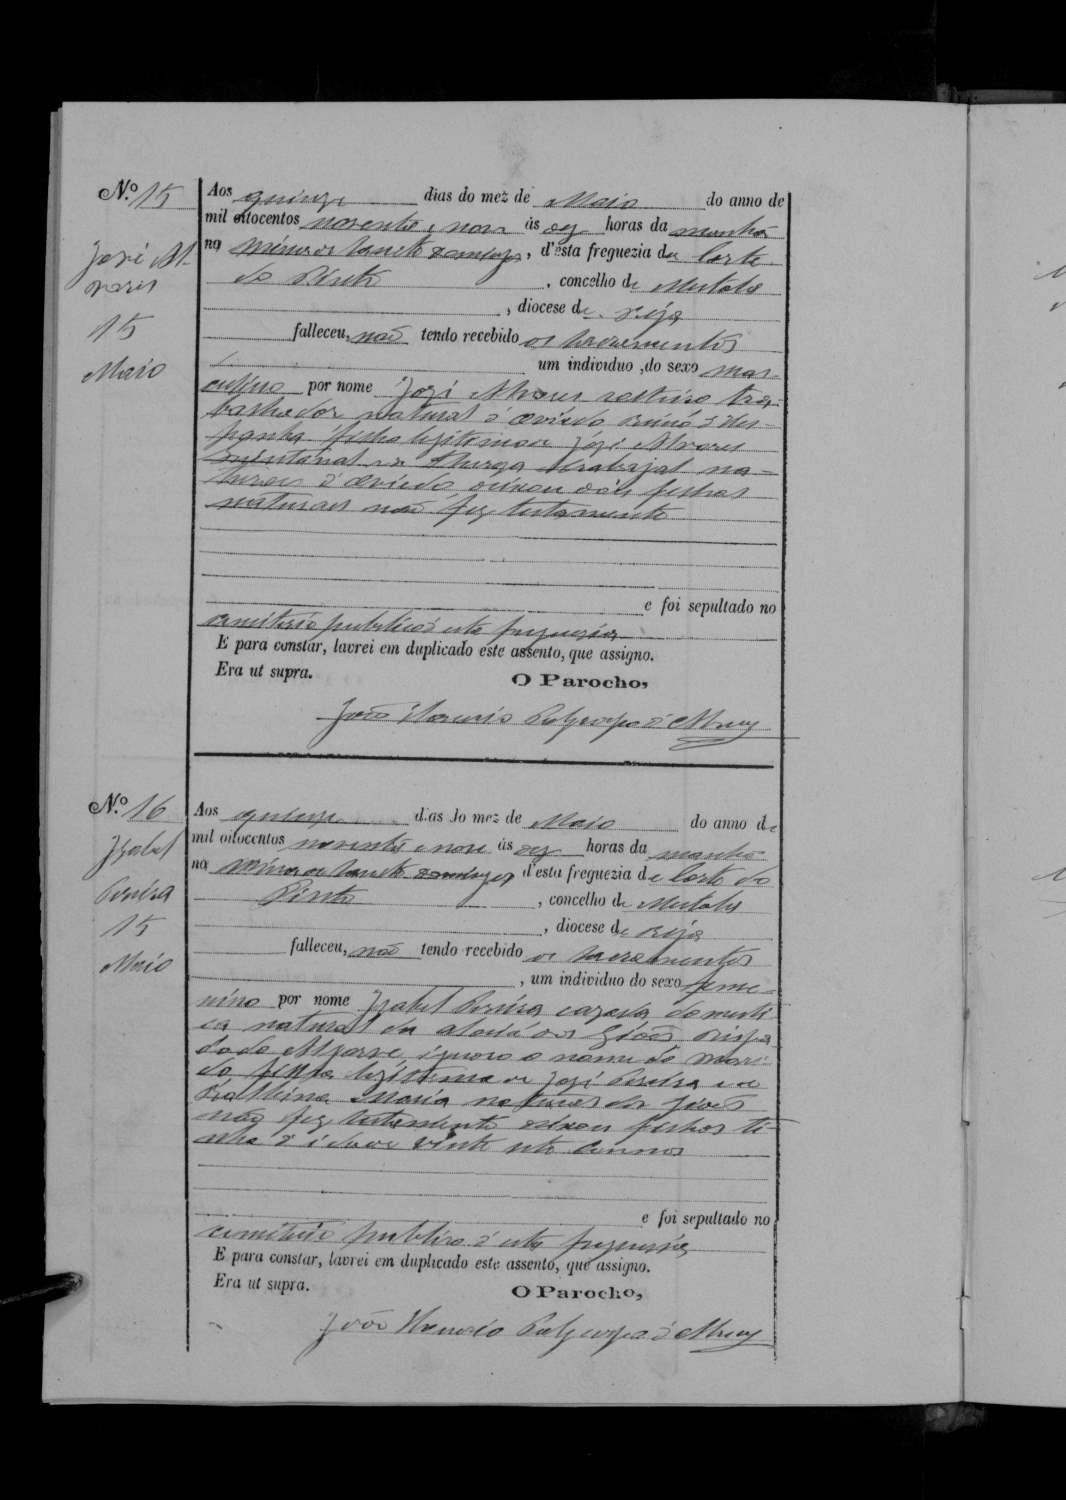 N.º 15
José Al-
vares
15
Maio
Aos quinze dias do mez de Maio do anno de
mil oitocentos noventa e nove ás dez horas da manhã
na Mina de Sancto Domingos, d'esta freguezia de Corte
do Pinto, concelho de Mertola
, diocese de Beja
falleceu, não tendo recebido os sacramentos
um individuo ,do sexo mas-
culino por nome José Alvares solteiro tra-
balhador natural d'Oviedo Reino d'Hes-
panha filho legitimo de José Alvares
de Thereza na-
turaes d'Oviedo deixou dois filhos
naturaes não fez testamento
e foi sepultado no
cemiterio publico d'esta freguezia
E para constar, lavrei em duplicado este assento, que assigno.
Era ut supra.
O Parocho,
João
N.º 16
Izabel
Pereira
15
Maio
Aos quinze dias do mez de Maio do anno de
mil oitocentos noventa e nove ás dez horas da manhã
na Mina de Sancto Domingos d'esta freguezia de Corte do
Pinto, concelho de Mertola
, diocese de Beja
falleceu, não tendo recebido os sacramentos
, um individuo do sexo feme-
nino por nome Izabel Pereira cazada domesti
ca natural da aldeia dos Giões Bispa
do do Algarve, ignoro o nome do mari-
do filha legitima de José Pereira e de
Maria naturaes dos Giões
não fez testamento deixou filhos ti-
nha d'idade vinte oito annos
e foi sepultado no
cemiterio publico d'esta freguezia
E para constar, lavrei em duplicado este assento, que assigno.
Era ut supra.
O Parocho,
João